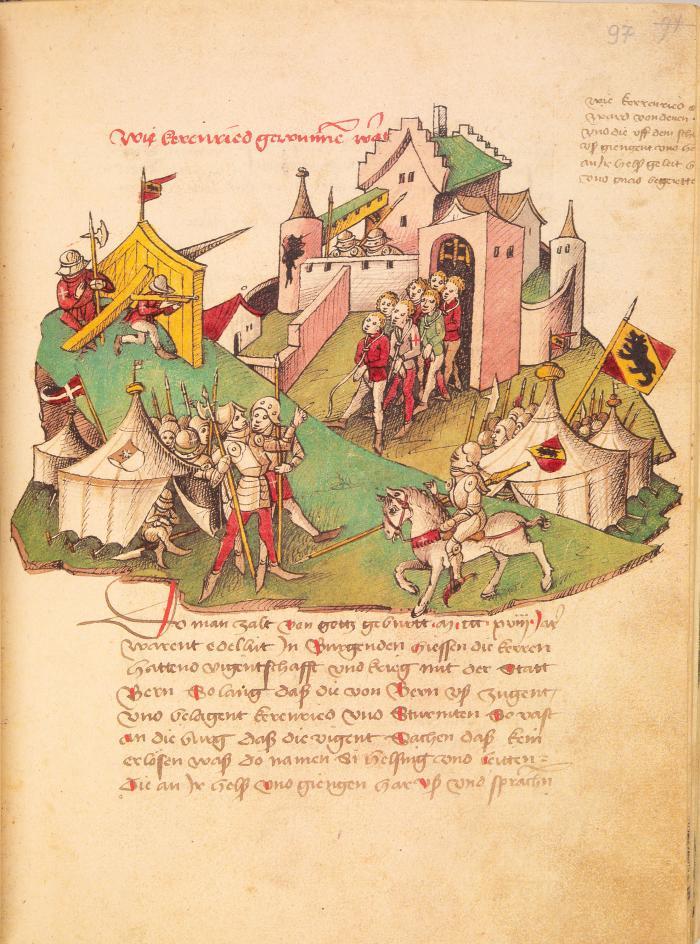 97 91
wie kerenried gewunnē was
wie kerrenried
ward von denen
vnd die vff dem
vß giengent vnd
an Ir helß geleit
vnd gnad begerette
Do man zalt von gotz geburtt m ccc xviij Jar
warent edellüt In Burgenden hiessen die herren
hattend vigentschafft vnd krieg mit der Statt
Bern So lang daß die von Bern vß zugent
vnd belagent kerenried vnd Sturmten So vast
an die burg daß die vigent Sachen daß kein
erlösen waß do namen Si helsing vnd leitten
die an Ir helß vnd giengen har vß vnd sprachn